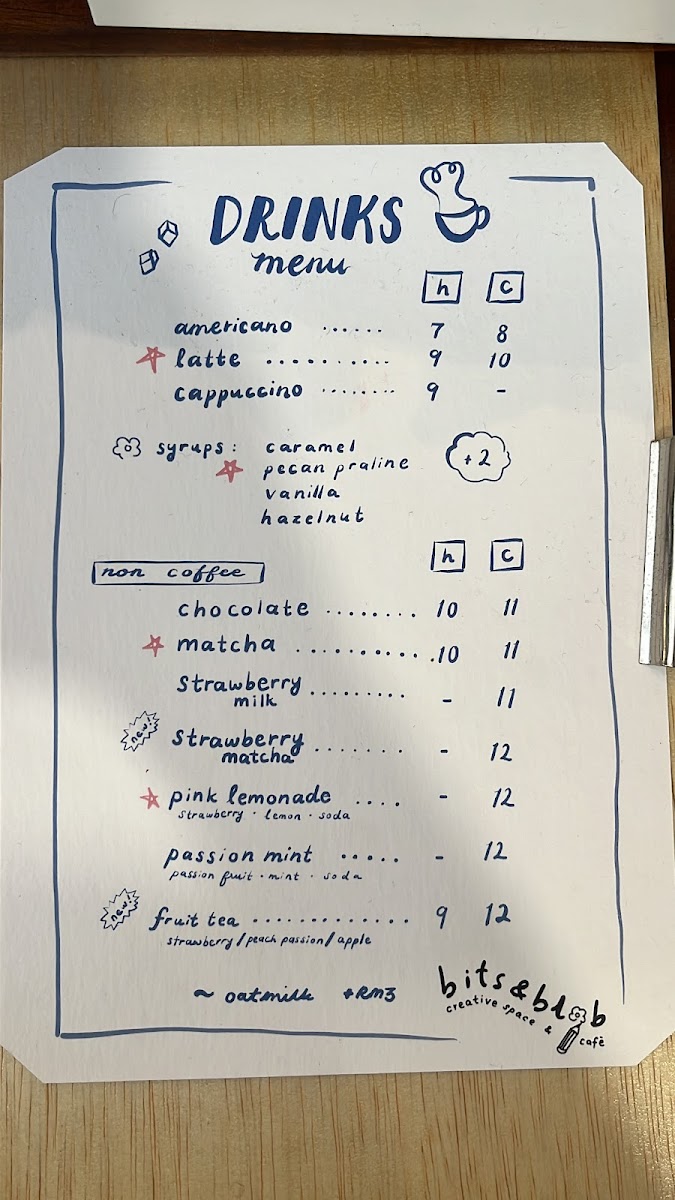 DRINKS
menu
h c
americano ...... 7 8
latte .......... 9 10
cappuccino ........ 9 -
syrups: caramel +2
pecan praline
vanilla
hazelnut
non coffee h c
chocolate ........ 10 11
matcha ........... 10 11
strawberry ......... - 11
milk
new!
strawberry ....... - 12
matcha
pink lemonade .... - 12
strawberry · lemon · soda
passion mint ..... - 12
passion fruit · mint · soda
new!
fruit tea ............. 9 12
strawberry/peach passion/apple
~ oatmilk +RM3
bits & blob
creative space &
cafè